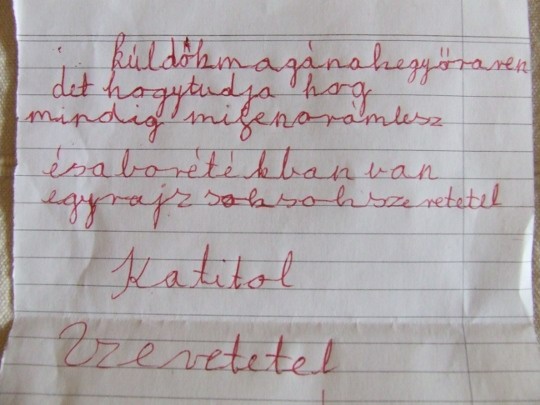 küldökmagánakegyóraren
dethogytudja hog
mindig mijenorámlesz
ésaborétékbanvan
egyrajz soksokszeretetel
Katitol
Szeretetel